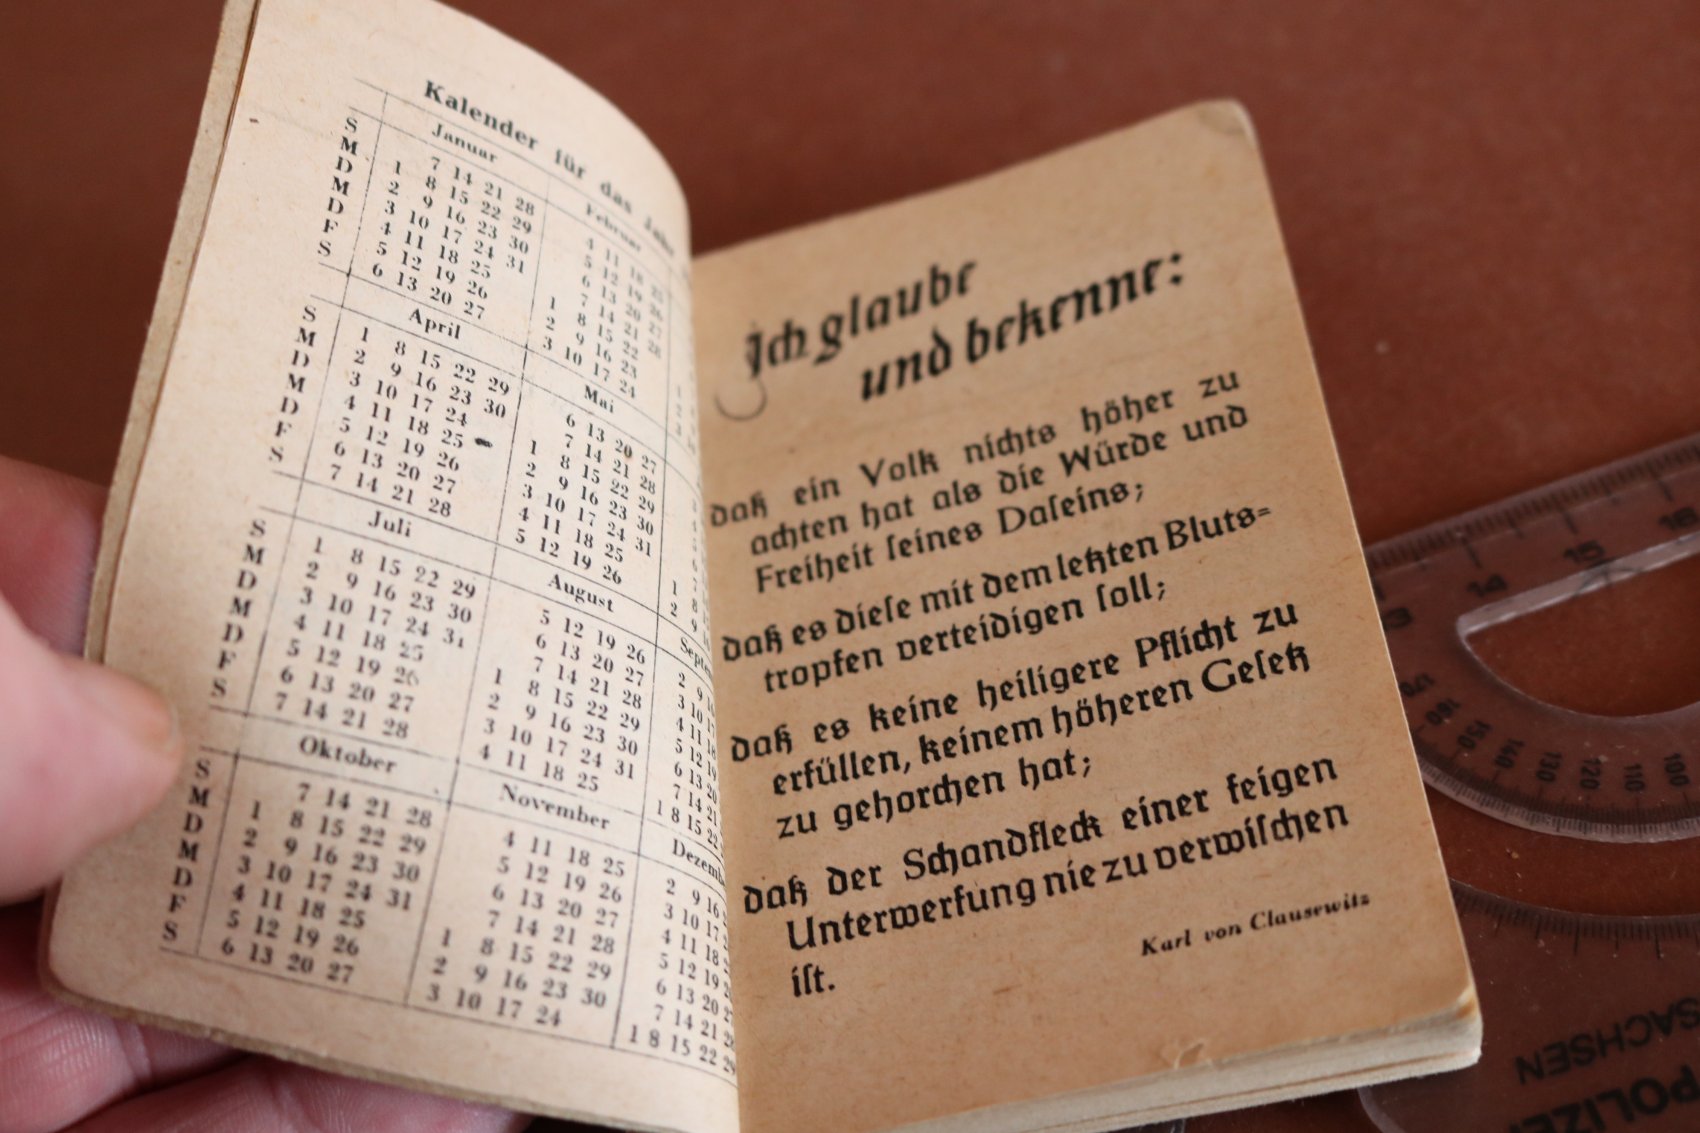 Kalender für das Jahr
Januar Februar
S 7 14 21 28 4 11 18 25
M 1 8 15 22 29 5 12 19 26
D 2 9 16 23 30 6 13 20 27
M 3 10 17 24 31 7 14 21 28
D 4 11 18 25 1 8 15 22
F 5 12 19 26 2 9 16 23
S 6 13 20 27 3 10 17 24
April Mai
S 1 8 15 22 29 6 13 20 27
M 2 9 16 23 30 7 14 21 28
D 3 10 17 24 1 8 15 22 29
M 4 11 18 25 2 9 16 23 30
D 5 12 19 26 3 10 17 24 31
F 6 13 20 27 4 11 18 25
S 7 14 21 28 5 12 19 26
Juli August
S 1 8 15 22 29 5 12 19 26 2 9
M 2 9 16 23 30 6 13 20 27 3 10
D 3 10 17 24 31 7 14 21 28 4 11
M 4 11 18 25 1 8 15 22 29 5 12 19
D 5 12 19 26 2 9 16 23 30 6 13 20
F 6 13 20 27 3 10 17 24 31 7 14 21
S 7 14 21 28 4 11 18 25 1 8 15 22
Oktober November
S 7 14 21 28 4 11 18 25 2 9 16
M 1 8 15 22 29 5 12 19 26 3 10 17
D 2 9 16 23 30 6 13 20 27 4 11 18
M 3 10 17 24 31 7 14 21 28 5 12 19
D 4 11 18 25 1 8 15 22 29 6 13 20
F 5 12 19 26 2 9 16 23 30 7 14 21 28
S 6 13 20 27 3 10 17 24 1 8 15 22 29
Ich glaube
und bekenne:
daß ein Volk nichts höher zu
achten hat als die Würde und
Freiheit ſeines Daſeins;
daß es dieſe mit dem letzten Bluts=
tropfen verteidigen ſoll;
daß es keine heiligere Pflicht zu
erfüllen, keinem höheren Geſetz
zu gehorchen hat;
daß der Schandfleck einer feigen
Unterwerfung nie zu verwiſchen
iſt.
Karl von Clausewitz
14 15 16
170 160 150 140 130 120 110 100
SACHSEN
POLIZEI